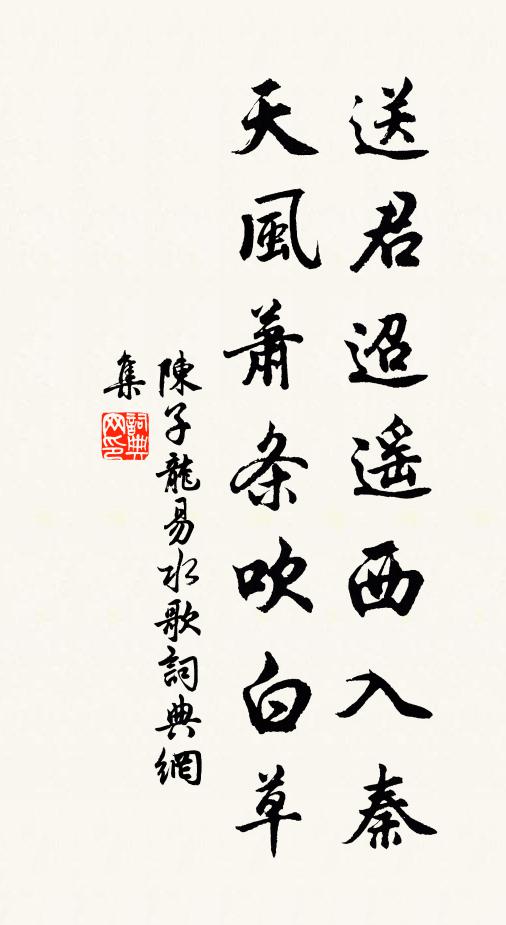 送君迢遥西入秦
天風蕭条吹白草
陳子龍易水歌詞典網
集
詞典
网印